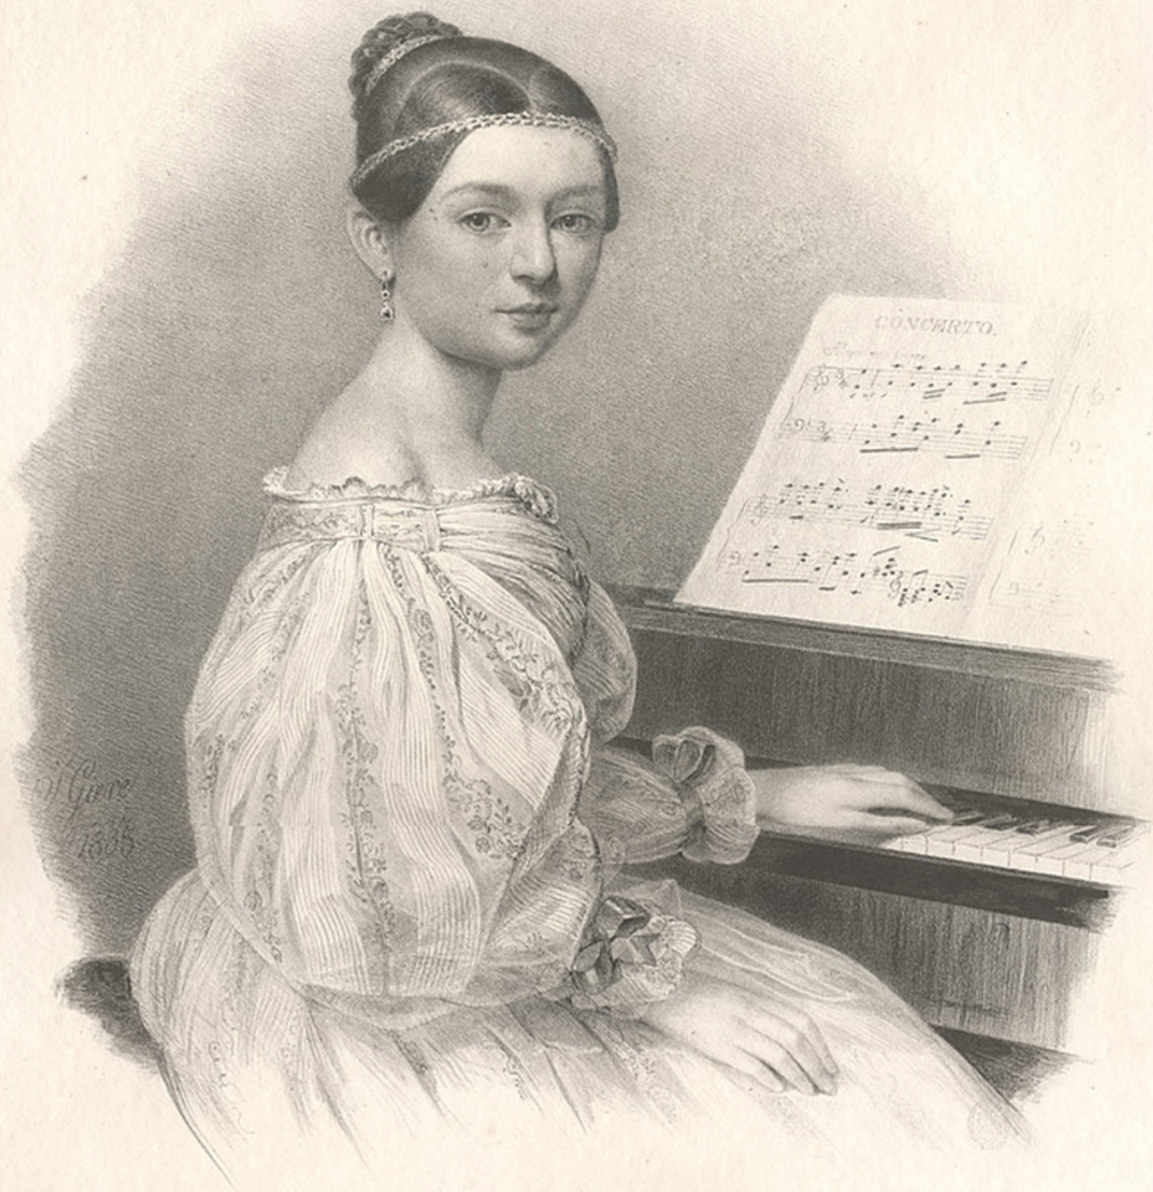 CONCERTO.
J. Giere
1835